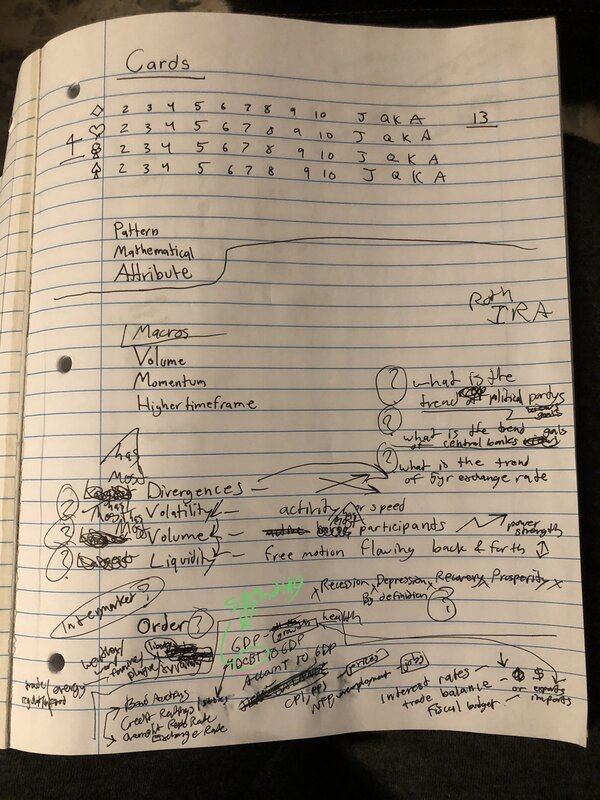 Cards
◇ 2 3 4 5 6 7 8 9 10 J Q K A 13
4 ♡ 2 3 4 5 6 7 8 9 10 J Q K A
♧ 2 3 4 5 6 7 8 9 10 J Q K A
♤ 2 3 4 5 6 7 8 9 10 J Q K A
Pattern
Mathematical
Attribute
Roth
IRA
Macros
Volume
Momentum
Higher timeframe
? what is the
trend of political partys
goals
? what is the trend goals
of central banks
? what is the trend
of 5yr exchange rate
has
Most
? Divergences -
? has Most Volatility - activity or speed
? Most Volume - participants power
strength
? Liquidity - free motion flowing back & forth
Intermarket?
x Recession x Depression x Recovery x Prosperity x
By definition ?
Order ?
Spending
GDP - growth health
DEBT TO GDP
Account TO GDP
CPI/PPI - prices
NFP unemployment - jobs
famine
plague
trade/energy
Bond Auctions
Credit Ratings
Overnight Repo Rate
Exchange Rate
interest rates -
trade balance - or exports
imports
Fiscal budget - $